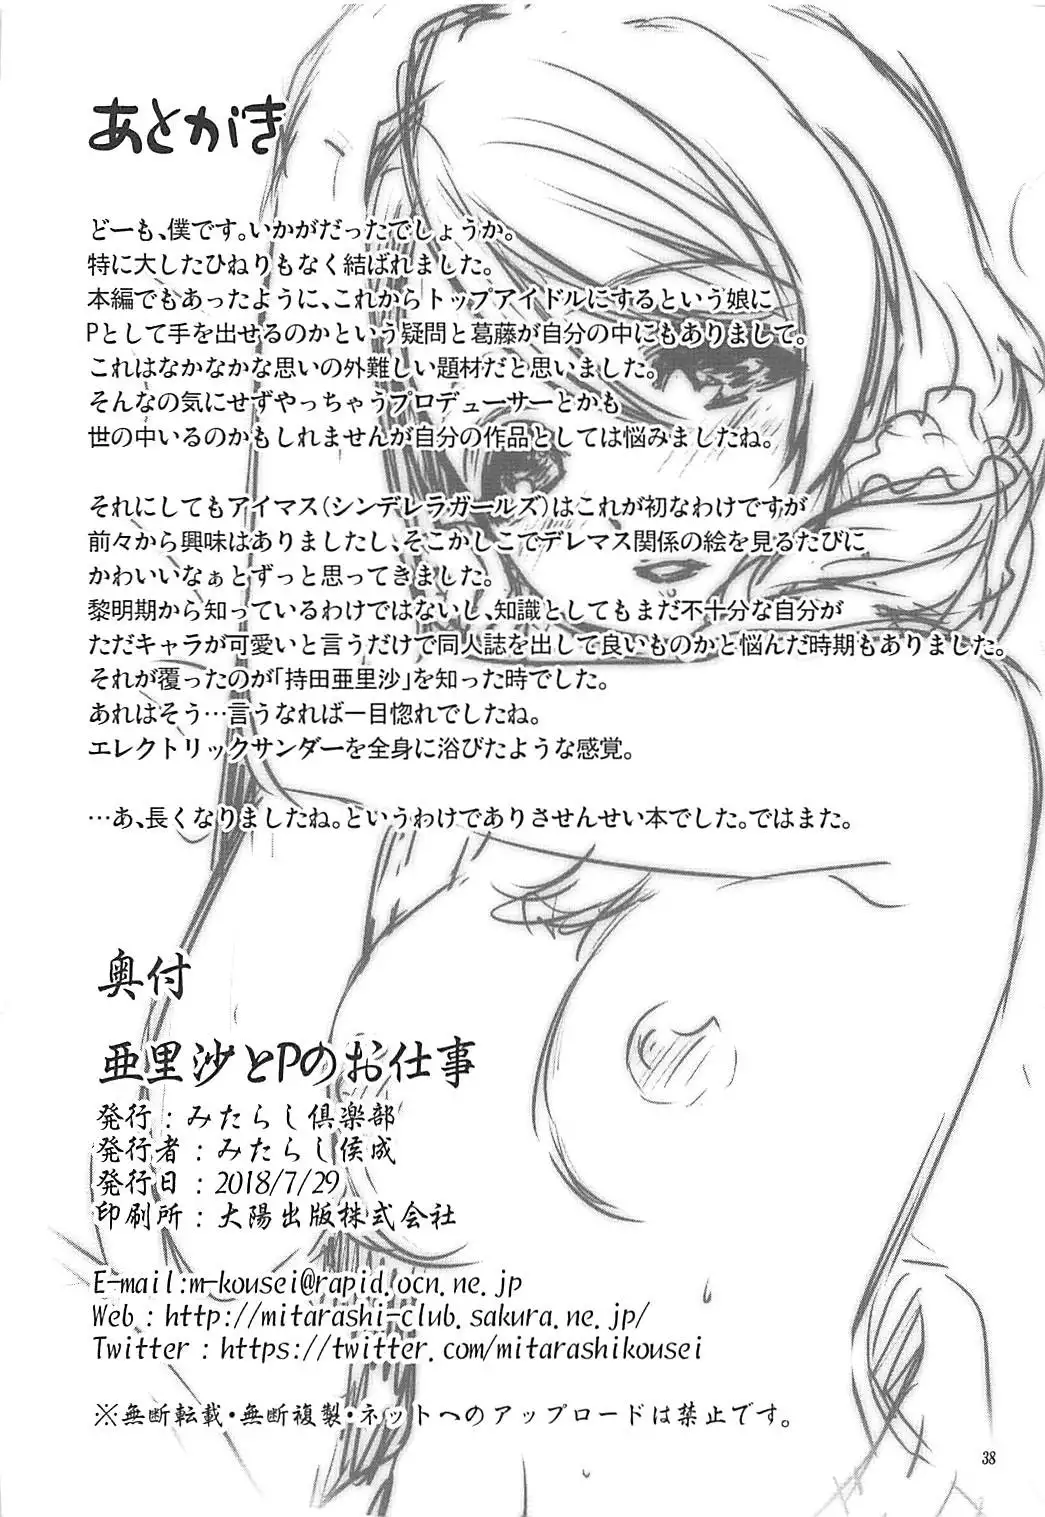 あとがき
どーも、僕です。いかがだったでしょうか。
特に大したひねりもなく結ばれました。
本編でもあったように、これからトップアイドルにするという娘に
Pとして手を出せるのかという疑問と葛藤が自分の中にもありまして。
これはなかなかな思いの外難しい題材だと思いました。
そんなの気にせずやっちゃうプロデューサーとかも
世の中いるのかもしれませんが自分の作品としては悩みましたね。
それにしてもアイマス(シンデレラガールズ)はこれが初なわけですが
前々から興味はありましたし、そこかしこでデレマス関係の絵を見るたびに
かわいいなぁとずっと思ってきました。
黎明期から知っているわけではないし、知識としてもまだ不十分な自分が
ただキャラが可愛いと言うだけで同人誌を出して良いものかと悩んだ時期もありました。
それが覆ったのが「持田亜里沙」を知った時でした。
あれはそう…言うなれば一目惚れでしたね。
エレクトリックサンダーを全身に浴びたような感覚。
…あ、長くなりましたね。というわけでありさせんせい本でした。ではまた。
奥付
亜里沙とPのお仕事
発行：みたらし倶楽部
発行者：みたらし侯成
発行日：2018/7/29
印刷所：大陽出版株式会社
E-mail:m-kousei@rapid.ocn.ne.jp
Web : http://mitarashi-club.sakura.ne.jp/
Twitter : https://twitter.com/mitarashikousei
※無断転載・無断複製・ネットへのアップロードは禁止です。
38